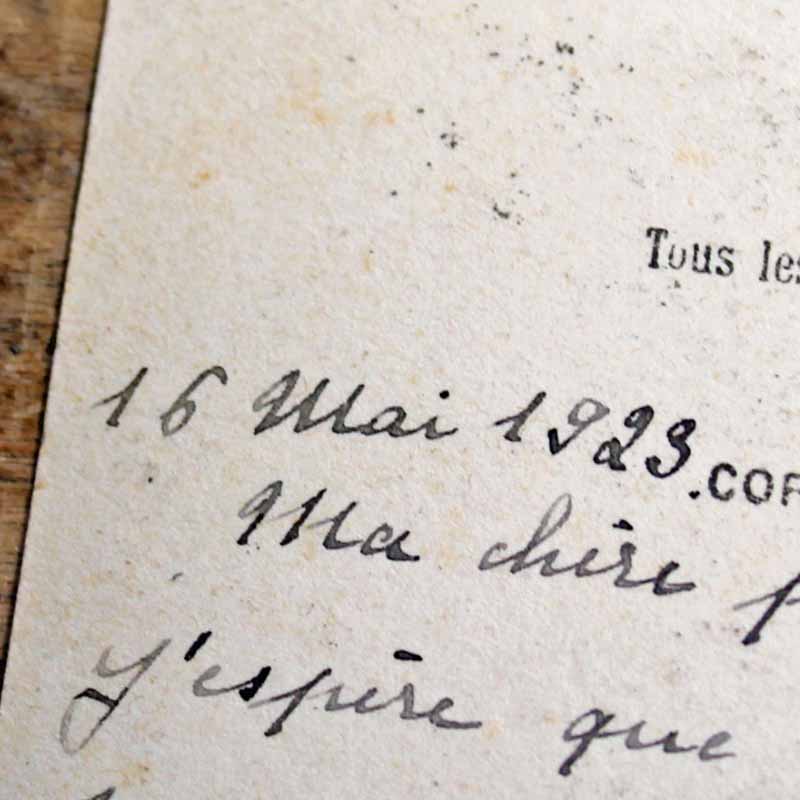 Tous les
16 Mai 1923
.COR
Ma chère
J'espère que